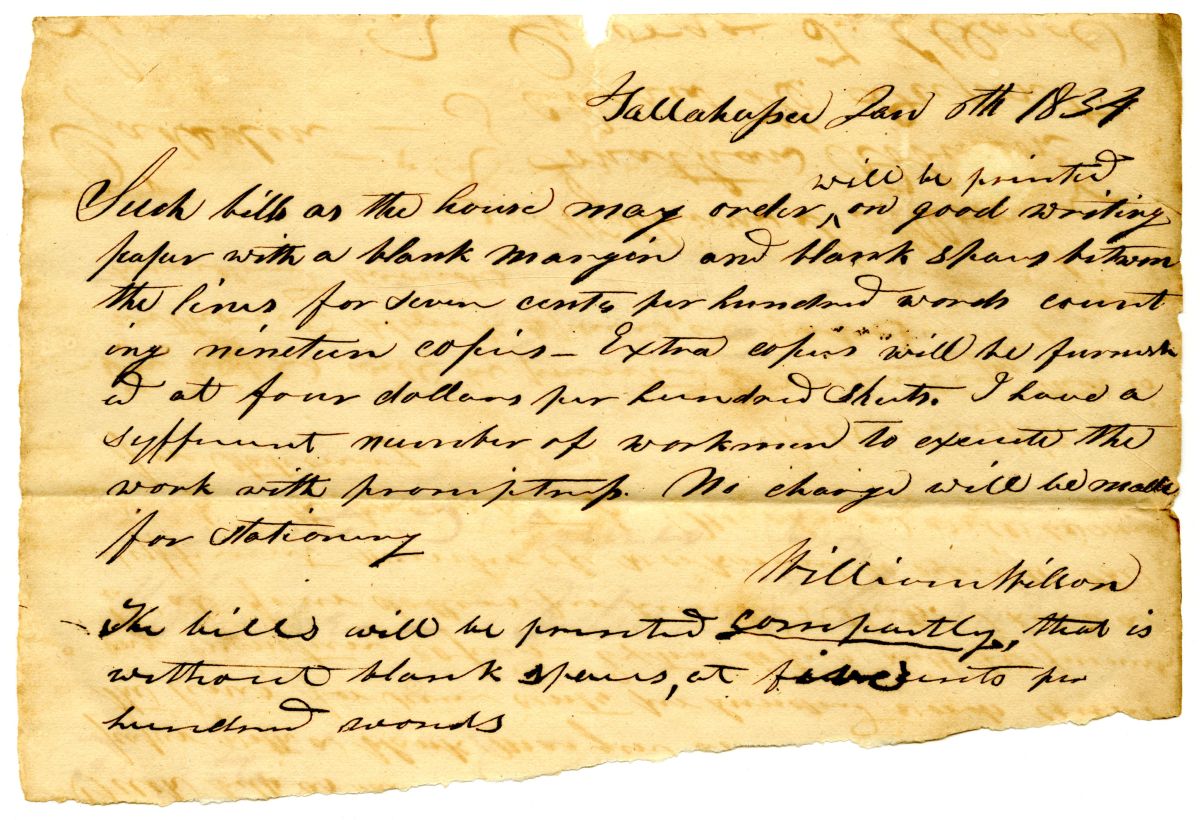 Tallahassee Jan 8th 1834
will be printed
Such bills as the house may order ^ on good writing
paper with a blank margin and blank spaces between
the lines for seven cents per hundred words count
ing nineteen copies – Extra copies will be furnish
ed at four dollars per hundred sheets. I have a
syfficient number of workmen to execute the
work with promptness. No charge will be made
for stationery
William Wilson
The bills will be printed compactly, that is
without blank spaces, at five cents per
hundred words